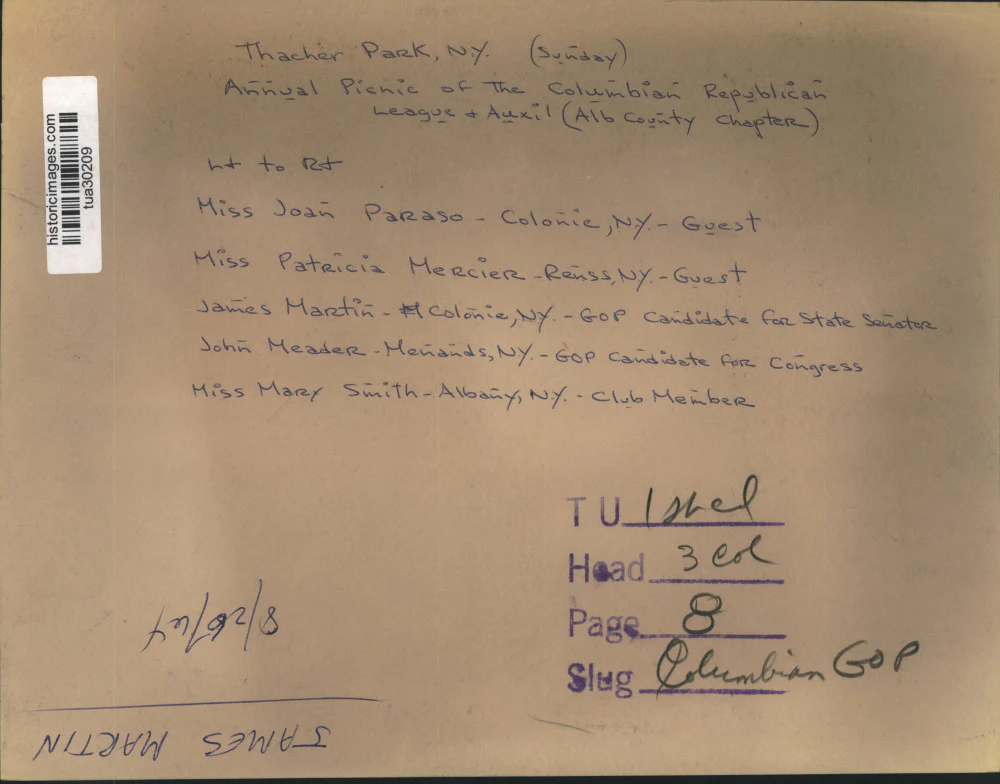 Thacher Park, N.Y. (Sunday)
Annual Picnic of The Columbian Republican
League & Auxil (Alb County Chapter)
Lt to Rt
Miss Joan Paraso - Colonie, N.Y. - Guest
Miss Patricia Mercier - Renss, N.Y. - Guest
James Martin - Colonie, N.Y. - GOP Candidate for State Senator
John Meader - Menands, N.Y. - GOP Candidate for Congress
Miss Mary Smith - Albany, N.Y. - Club Member
historicimages.com
tua30209
TU
Head 3 col
Page 8
Slug Columbian GOP
8/26/64
JAMES MARTIN